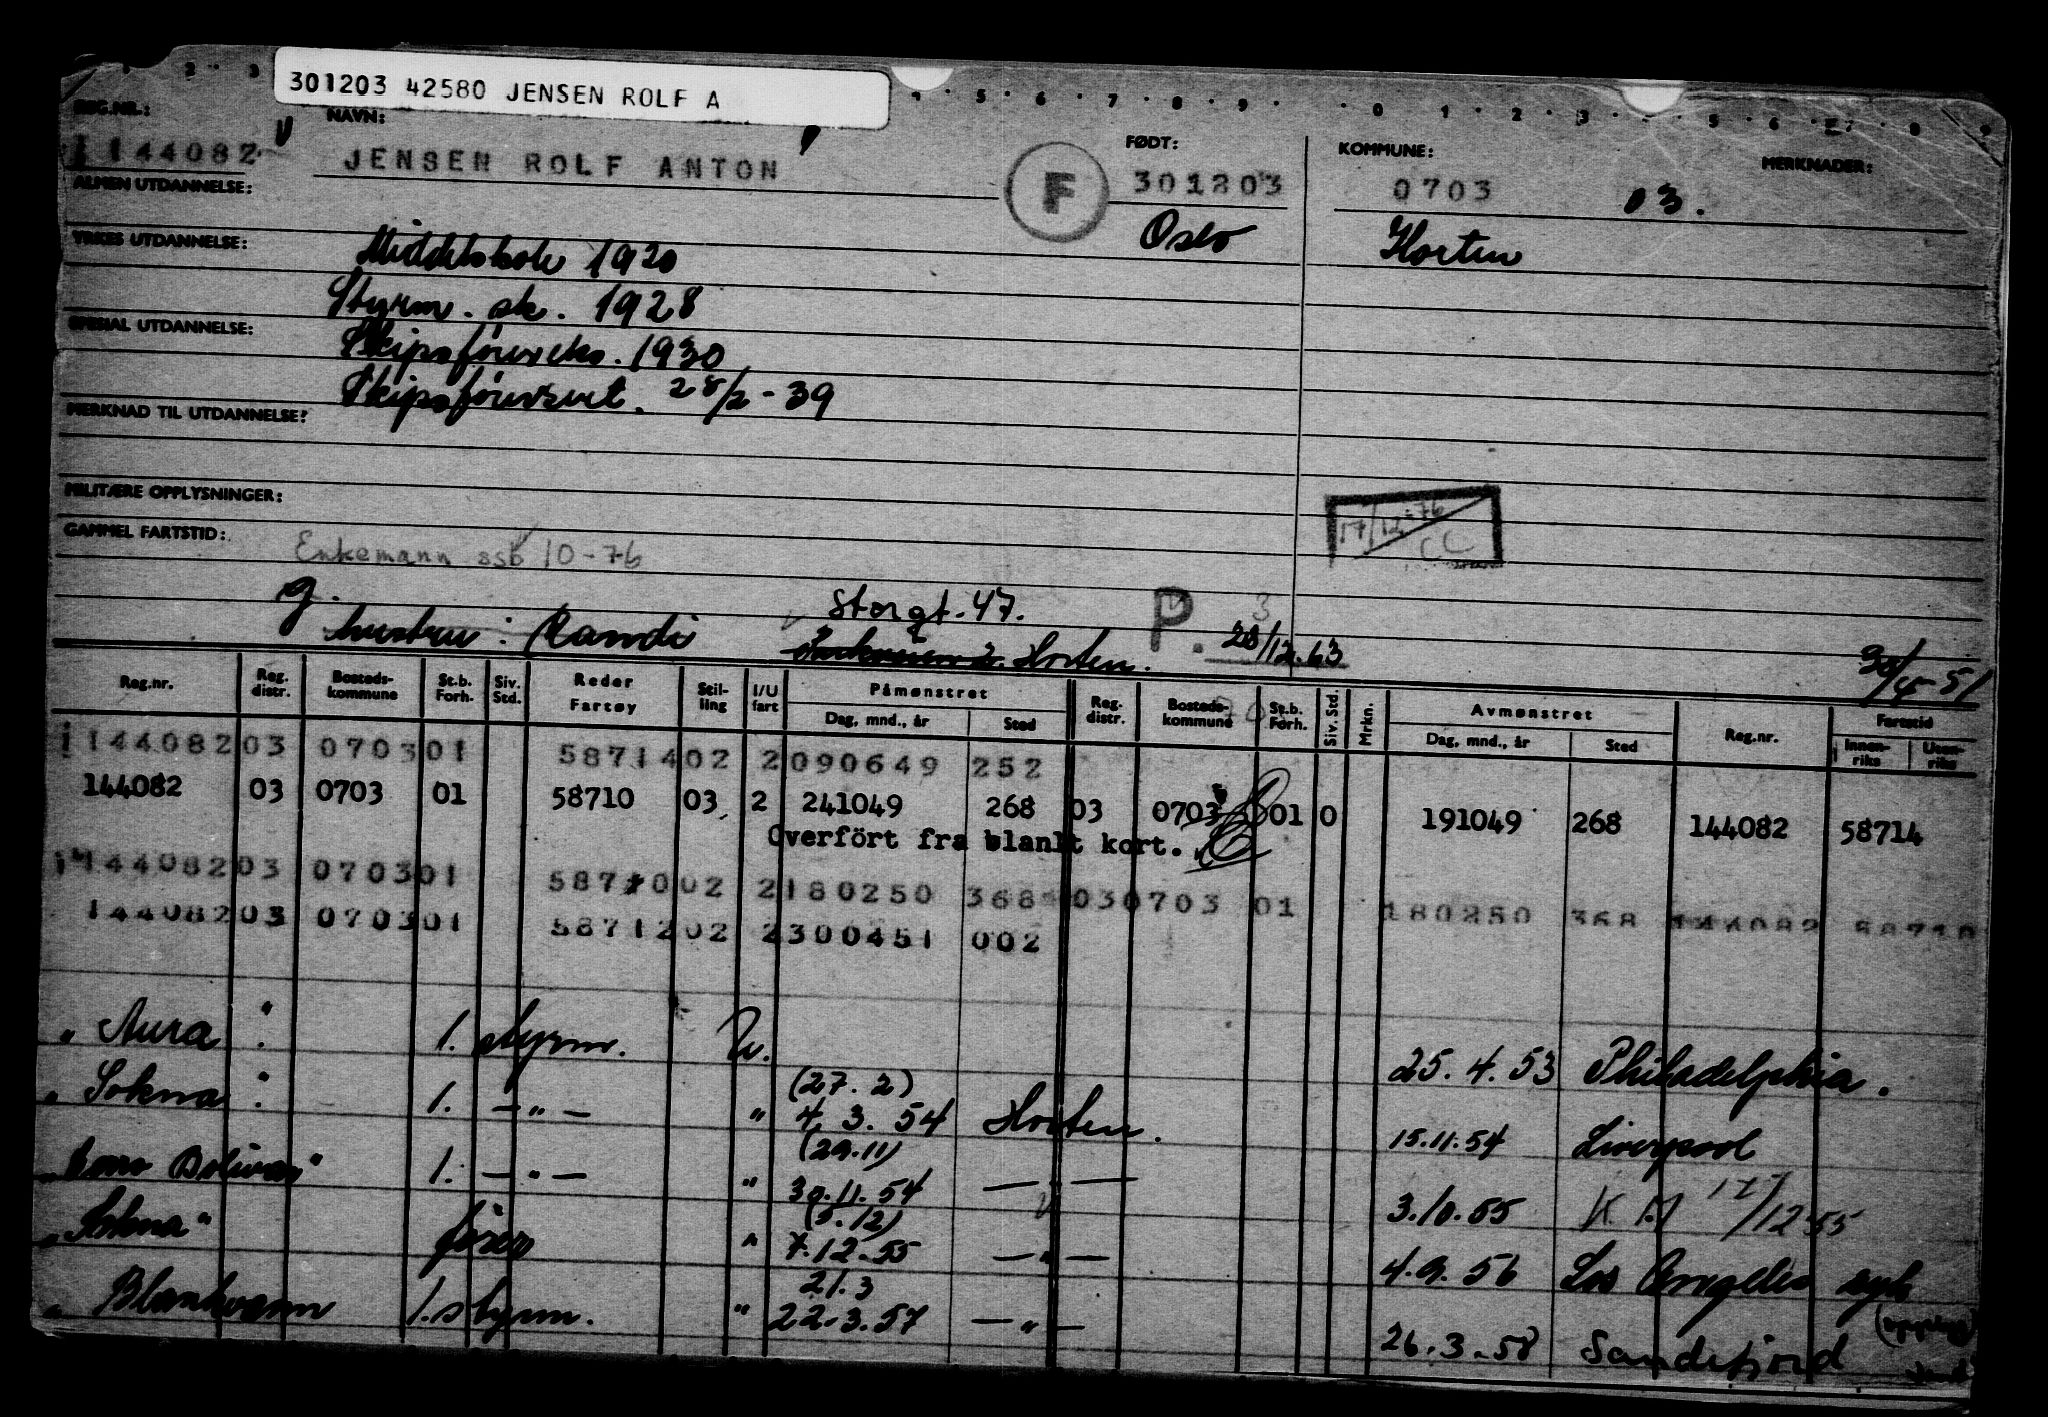 301203 42580 JENSEN ROLF A
REG.NR.: NAVN: FØDT: KOMMUNE: MERKNADER:
144082 JENSEN ROLF ANTON F 301203 0703 03.
ALMEN UTDANNELSE: Oslo Horten
YRKES UTDANNELSE: Middelskole 1920
Styrm. sk. 1928
SPESIAL UTDANNELSE: Skipsførereks. 1930
Skipsførersert. 28/2-39
MERKNAD TIL UTDANNELSE:
MILITÆRE OPPLYSNINGER:
17/12-76
CC
GAMMEL FARTSTID:
Enkemann ssb 10-76
g. Storgt. 47. P. 3
hustru: Randi Horten. 28/12.63 51
Reg.nr. Reg. distr. Bosteds-kommune St.b. Forh. Siv. Std. Reder Fartøy Stil-ling I/U fart Påmønstret Dag, mnd., år Sted Reg. distr. Bosteds-kommune St.b. Forh. Siv. Std. Mrkn. Avmønstret Dag, mnd., år Sted Reg.nr. Fartstid Innen-riks Uten-riks
144082 03 0703 01 58714 02 2 090649 252
144082 03 0703 01 58710 03 2 241049 268 03 0703 01 0 191049 268 144082 58714
Overført fra blankt kort.
144082 03 0703 01 58710 02 2 180250 368 03 0703 01 180250 368 144082 58710
144082 03 0703 01 58712 02 2 300451 002
" Aura " 1. styrm. U. 25.4.53 Philadelphia.
(27.2)
" Sokna " 1. —"— " 4.3.54 Horten. 15.11.54 Liverpool
(29.11)
Bolivar" 1. —"— " 30.11.54 —"— 3.10.55 17/12 55
(5.12)
" fører " 7.12.55 —"— 4.9.56 Los Angeles syk
21.3
" Blankvann 1. styrm. " 22.3.57 —"— 26.3.58 Sandefjord